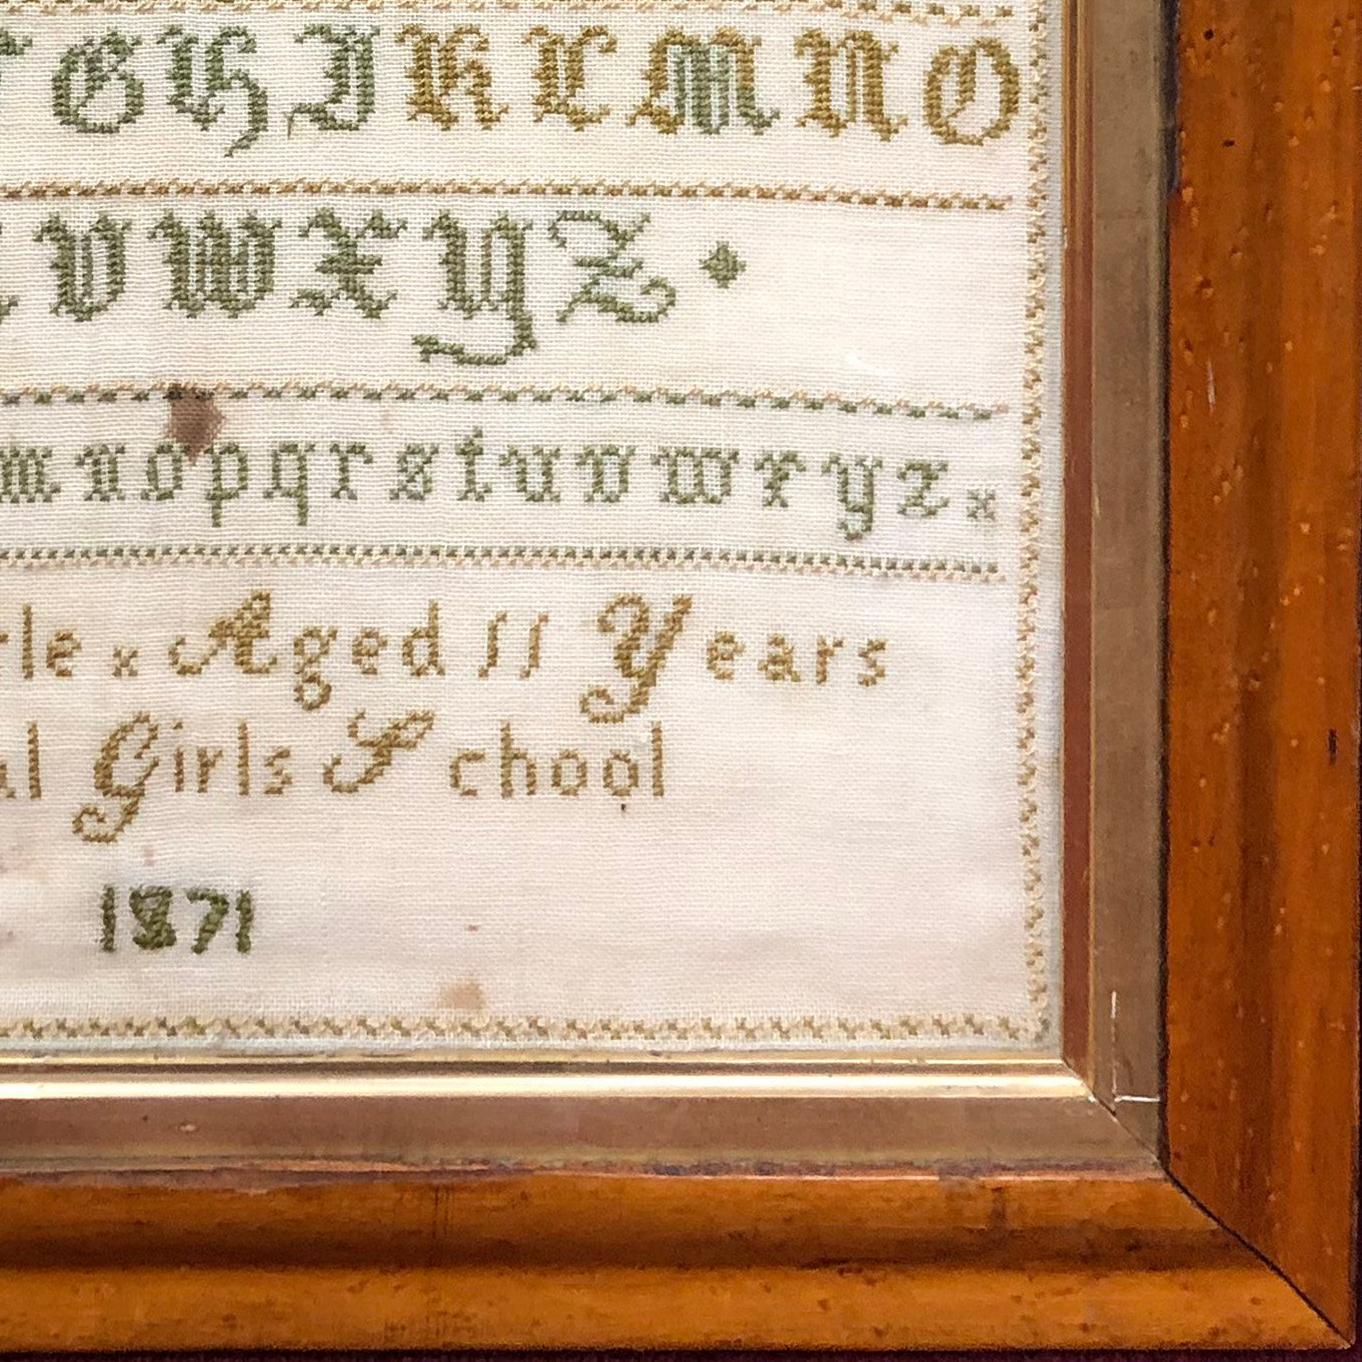 G H I K L M N O
V W X Y Z
m n o p q r s t u v w x y z x
rle x Aged 11 Years
al Girls School
1871